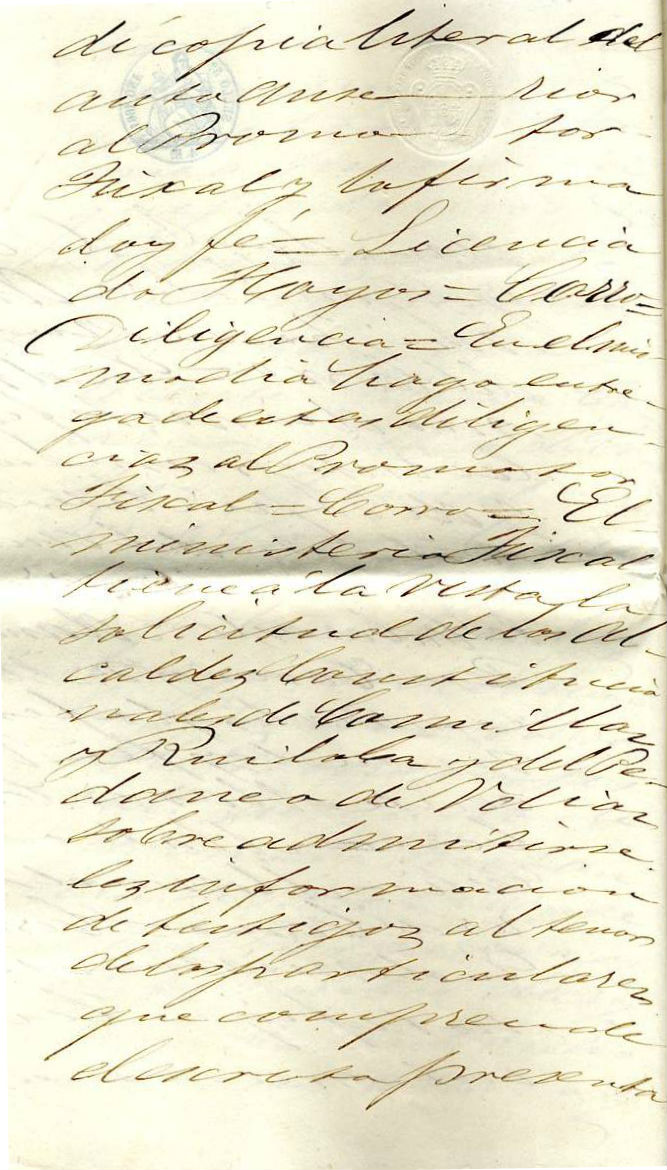 dí copia literal del
auto ante rior
al Promo tor
Fiscal y lo firma
doy fé = Licencia
do Hoyos = Corro =
Diligencia = En el mis
mo dia hago entre-
ga de estas diligen-
cias al Promotor
Fiscal = Corro = El
ministerio Fiscal
tiene á la vista la
solicitud de los Al-
caldes Constitucio
nales de Comillas
y Ruiloba y del Pe-
daneo de
sobre admitirse
les informacion
de testigos al tenor
de los particulares
que comprende
el escrito presenta